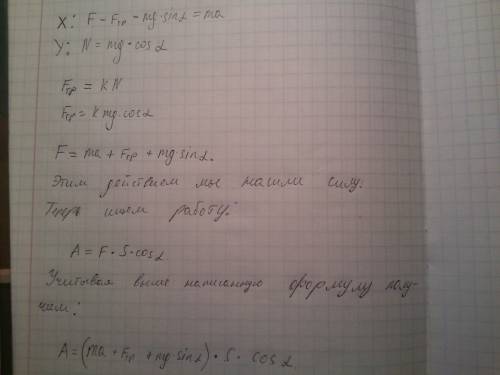 X: F - Fтр - mg·sinα = ma
У: N = mg·cosα
Fтр = kN
Fтр = kmg·cosα
F = ma + Fтр + mg·sinα.
Этим действием мы нашли силу.
Теперь ищем работу:
A = F·S·cosα
Учитывая выше написанную формулу полу-
чаем:
A = (ma + Fтр + mg·sinα)·S·cosα